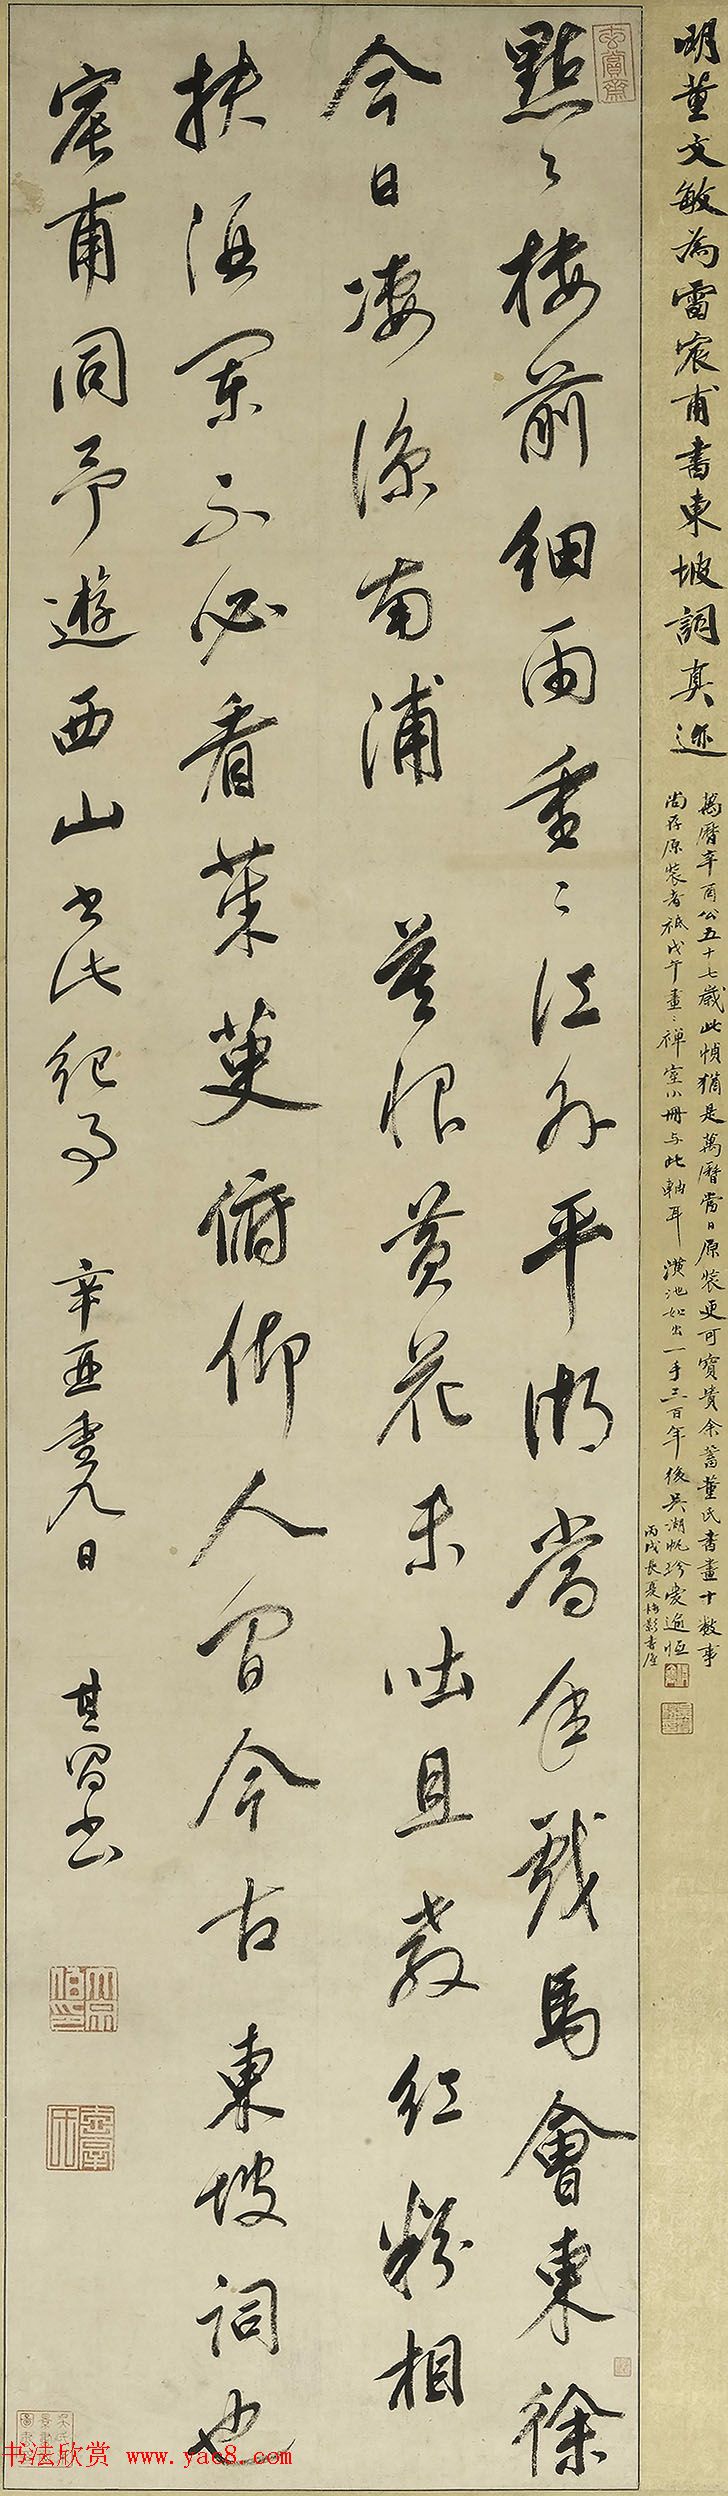 明董文敏為雷宸甫書東坡詞真迹
萬曆辛酉公五十七歲此幀猶是萬曆當日原裝更可寶貴余蓄董氏書畫十數事
尚存原裝者祇戊午畫〻禪室小冊与此軸耳 潢池如出一手三百年後吳湖帆珍愛逾恒
丙戌長夏梅影書屋
玄賞齋
點〻樓前細雨重〻江外平湖當年戲馬會東徐
今日凄涼南浦 莫恨黃花未吐且教紅粉相
扶酒闌不必看茱萸俯仰人間今古 東坡詞也
宸甫同予遊西山書此紀事 辛酉重九日 其昌書
书法欣赏 www.yac8.com